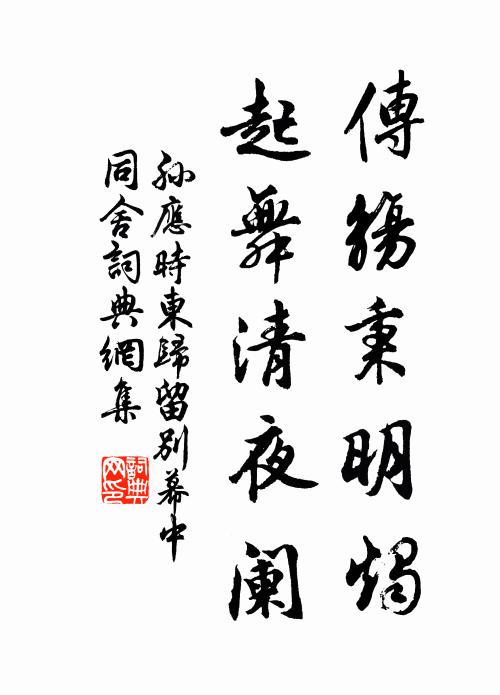 傳觴秉明燭
起舞清夜阑
孙應時東歸留别幕中
同舍詞典網集
詞典
网印